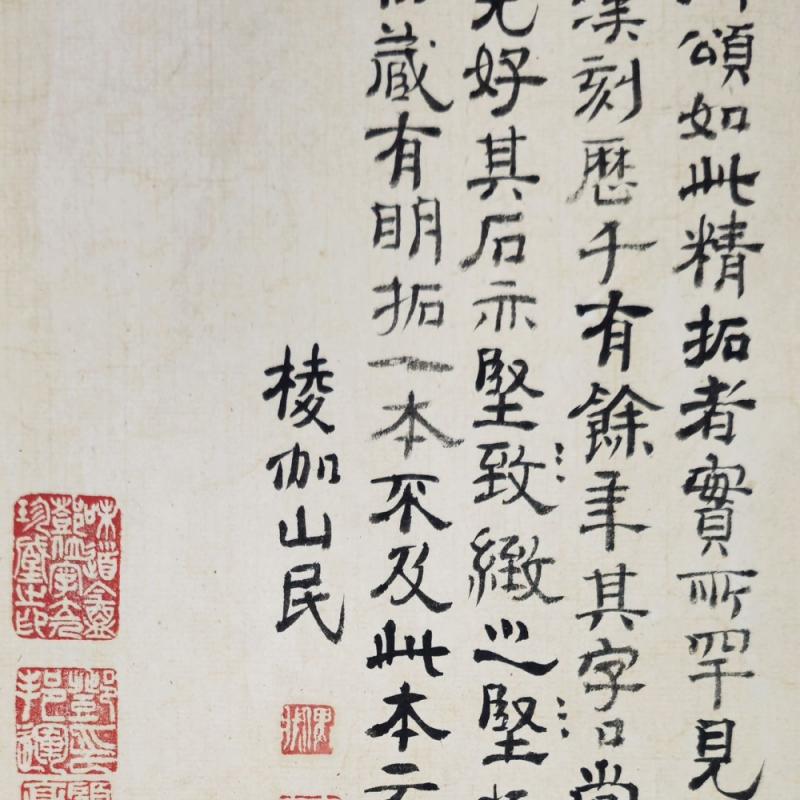 頌如此精拓者實所罕見
漢刻歷千有餘年其字口尚
好其石亦堅致緻堅
藏有明拓一本不及此本
棱伽山民
味道盦